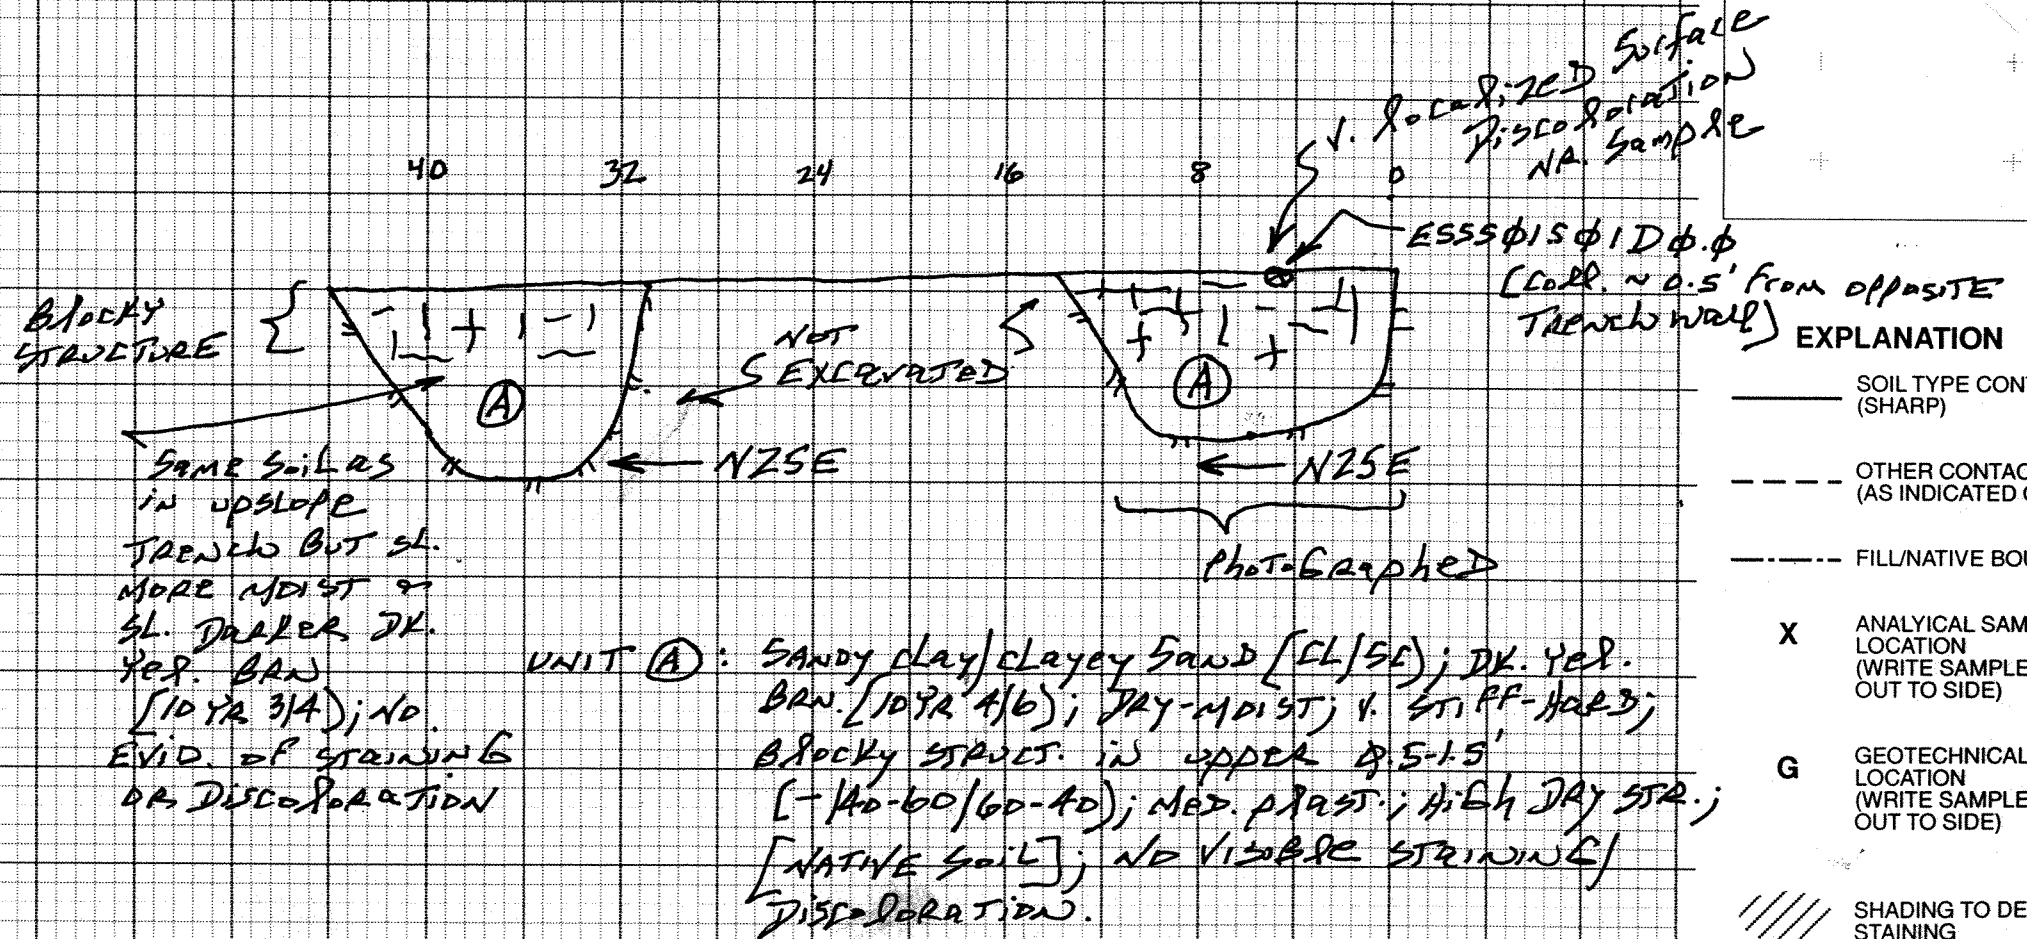 V. localized Surface
Discoloration
NR. Sample
40 32 24 16 8 0
ESSSØ1SØ1DØ.Ø
(Coll. ~ 0.5' From opposite
Trench wall)
Blocky
Structure
NOT
Excavated
A
A
N25E
N25E
Photographed
Same Soil as
in upslope
Trench But sl.
more moist &
sl. Darker DK.
Yel. BRN
(10 YR 3/4); NO
Evid. of staining
or Discoloration
UNIT A: SANDY clay/clayey SAND (CL/SC); DK. Yel.
BRN. (10YR 4/6); DRY-MOIST; V. STIFF-HARD;
Blocky struct. in upper 0.5-1.5'
(-/40-60/60-40); Med. plast.; High DRY STR.;
[NATIVE Soil]; NO Visible staining/
Discoloration.
EXPLANATION
SOIL TYPE CON
(SHARP)
OTHER CONTAC
(AS INDICATED
FILL/NATIVE BOU
X
ANALYICAL SAM
LOCATION
(WRITE SAMPLE
OUT TO SIDE)
G
GEOTECHNICAL
LOCATION
(WRITE SAMPLE
OUT TO SIDE)
SHADING TO DE
STAINING